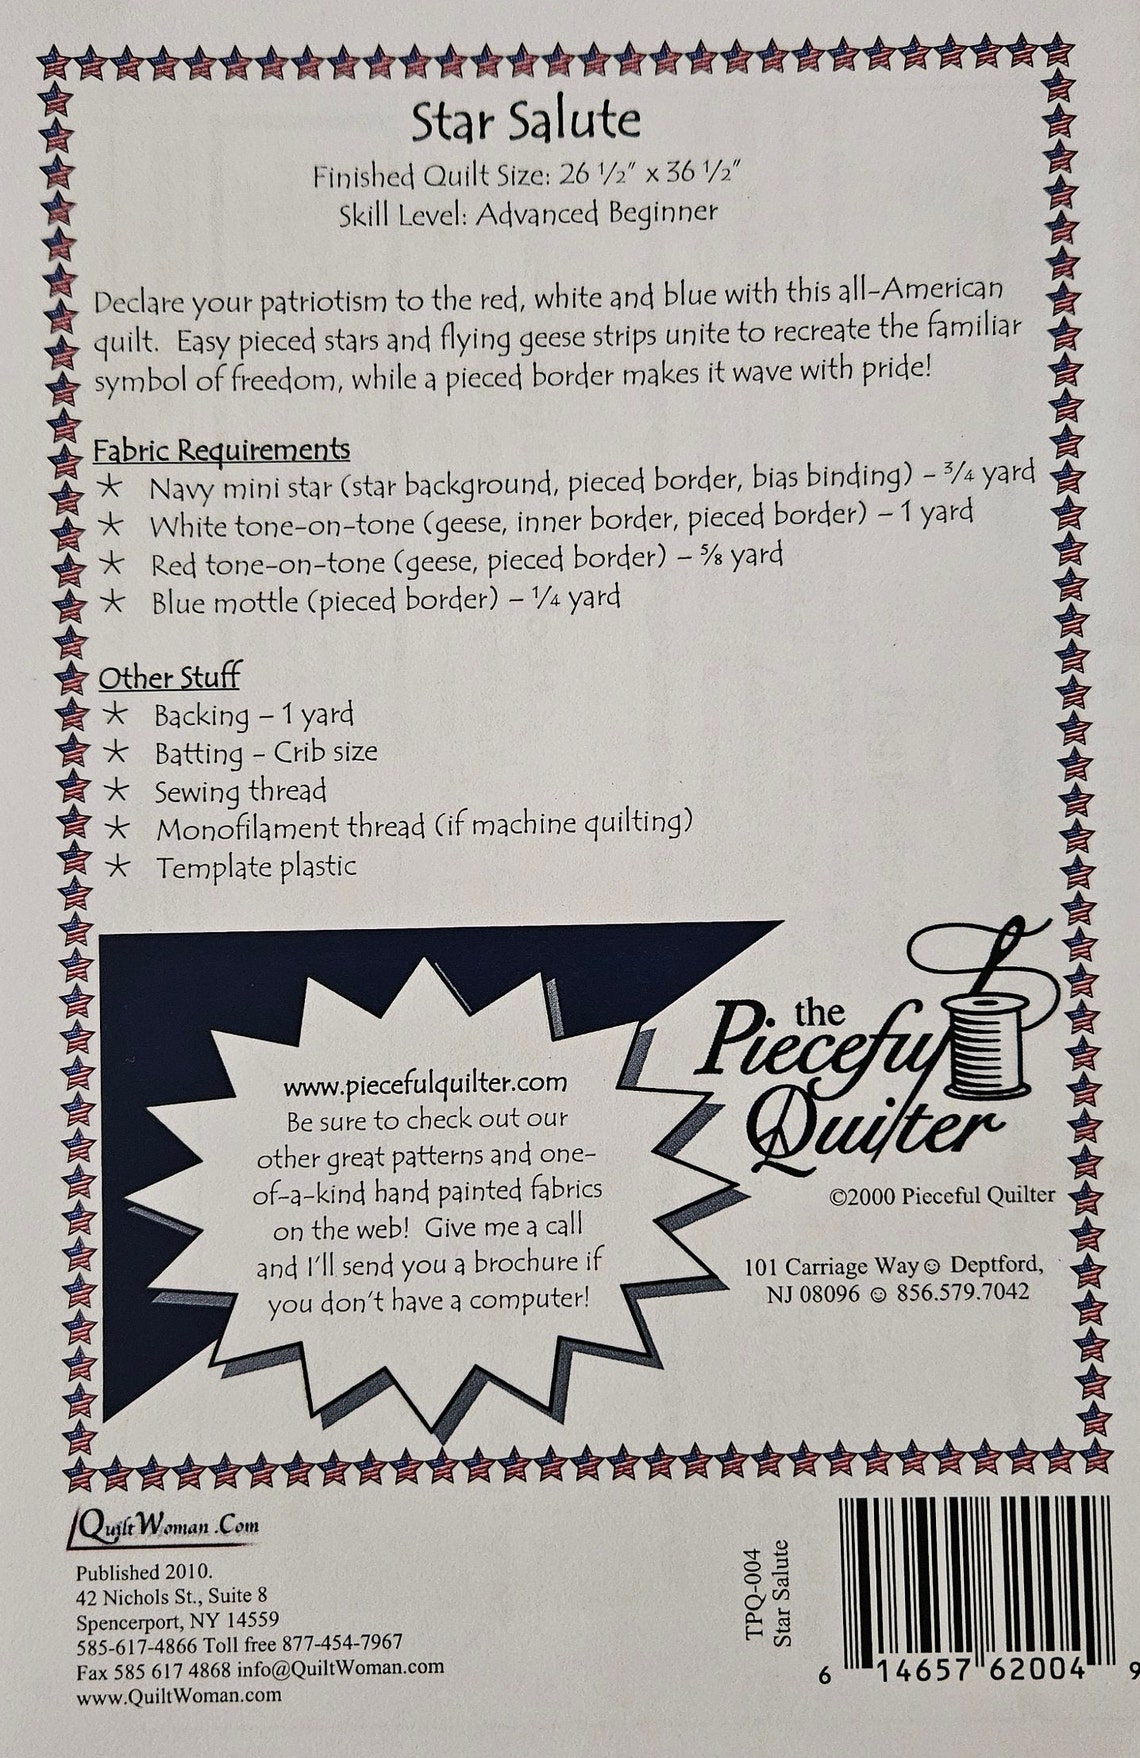 Star Salute
Finished Quilt Size: 26 ½" x 36 ½"
Skill Level: Advanced Beginner
Declare your patriotism to the red, white and blue with this all-American
quilt. Easy pieced stars and flying geese strips unite to recreate the familiar
symbol of freedom, while a pieced border makes it wave with pride!
Fabric Requirements
☆ Navy mini star (star background, pieced border, bias binding) – ¾ yard
☆ White tone-on-tone (geese, inner border, pieced border) – 1 yard
☆ Red tone-on-tone (geese, pieced border) – ⅝ yard
☆ Blue mottle (pieced border) – ¼ yard
Other Stuff
☆ Backing – 1 yard
☆ Batting – Crib size
☆ Sewing thread
☆ Monofilament thread (if machine quilting)
☆ Template plastic
www.piecefulquilter.com
Be sure to check out our
other great patterns and one-
of-a-kind hand painted fabrics
on the web! Give me a call
and I'll send you a brochure if
you don't have a computer!
the
Pieceful
Quilter
©2000 Pieceful Quilter
101 Carriage Way☺ Deptford,
NJ 08096 ☺ 856.579.7042
QuiltWoman.Com
Published 2010.
42 Nichols St., Suite 8
Spencerport, NY 14559
585-617-4866 Toll free 877-454-7967
Fax 585 617 4868 info@QuiltWoman.com
www.QuiltWoman.com
TPQ-004
Star Salute
6 14657 62004 9